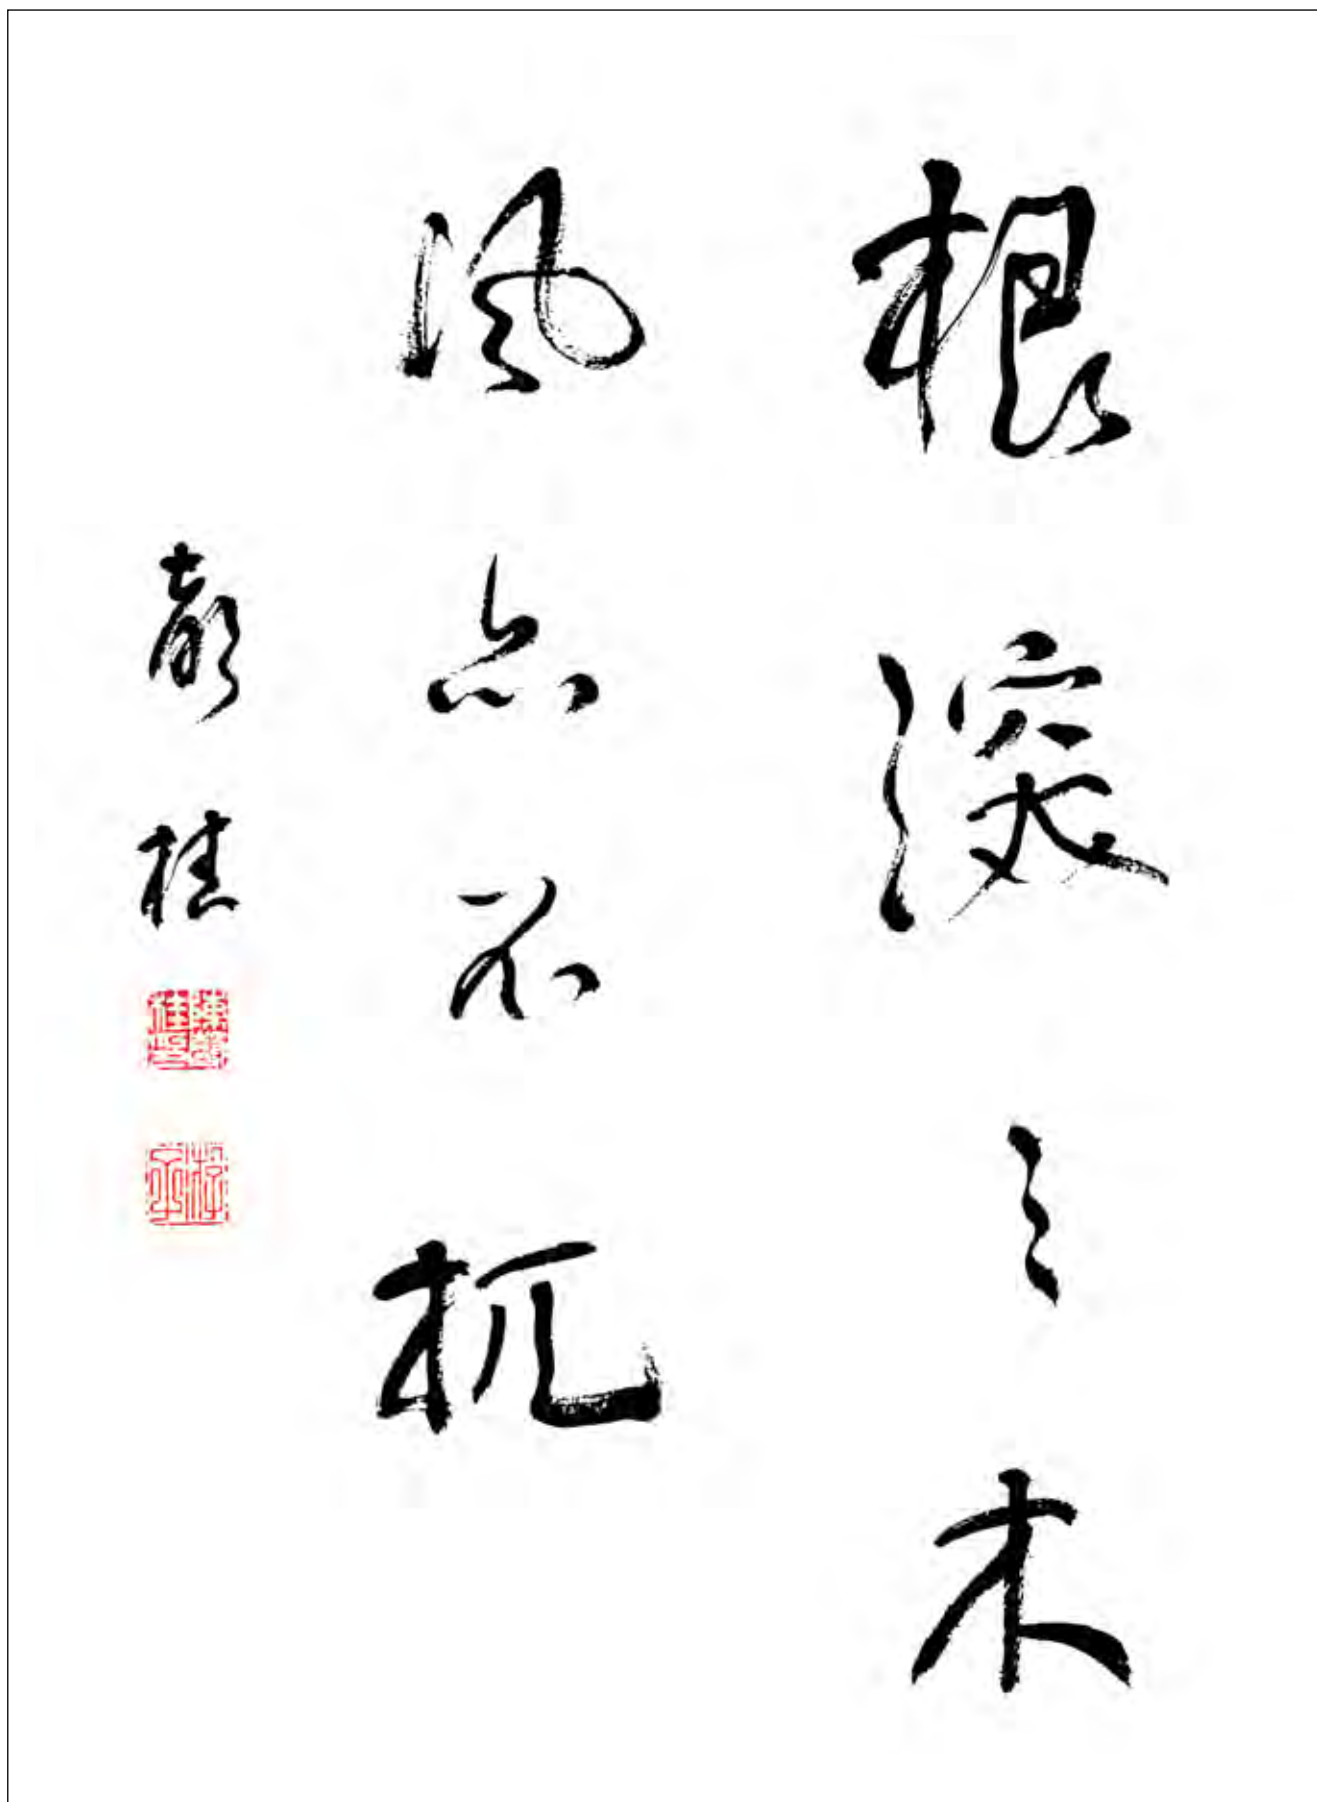 根深之木
風亦不扤
桂